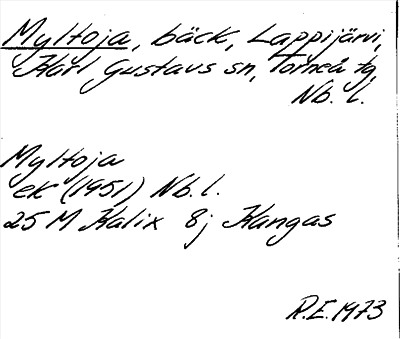 Myltoja, bäck, Lappijärvi,
Karl Gustavs sn, Torneå tg,
Nb. l.
Myltoja
ek (1951) Nb. l.
25 M Kalix 8j Kangas
R.E. 1973